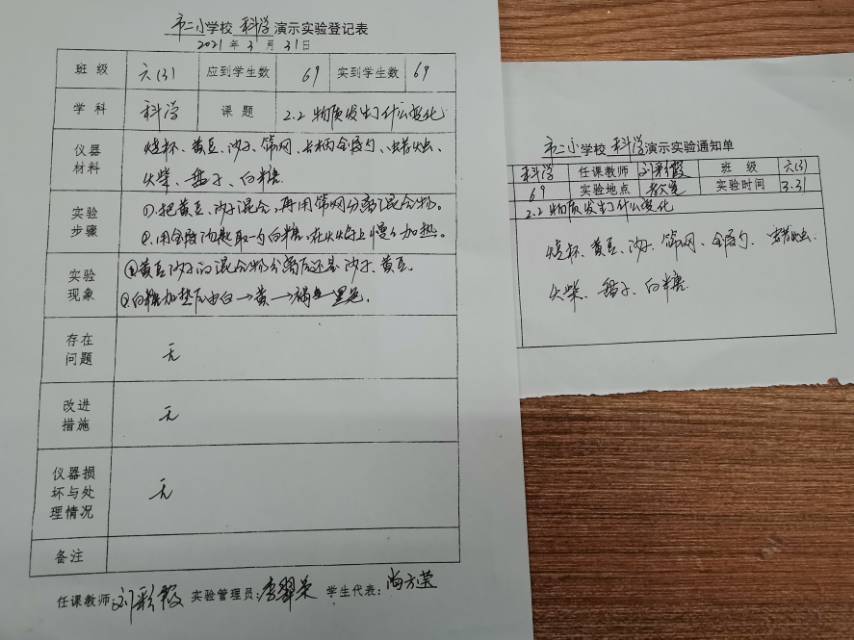 市二小学校 科学 演示实验登记表
2021年3月31日
班级 六(3) 应到学生数 69 实到学生数 69
学科 科学 课题 2.2物质发生了什么变化
仪器材料 烧杯、黄豆、沙子、筛网、长柄金属勺、蜡烛、
火柴、筷子、白糖
实验步骤 ①.把黄豆、沙子混合,再用筛网分离混合物。
②.用金属汤匙取一勺白糖,在火焰上慢慢加热。
实验现象 ①黄豆沙子的混合物分离后还是沙子、黄豆。
②白糖加热后由白→黄→褐→黑色。
存在问题 无
改进措施 无
仪器损坏与处理情况 无
备注
任课教师:刘彩霞 实验管理员: 学生代表:
市二小学校 科学演示实验通知单
科学 任课教师 刘彩霞 班级 六(3)
69 实验地点 实验时间 3.31
2.2物质发生了什么变化
烧杯、黄豆、沙子、筛网、金属勺、蜡烛
火柴、筷子、白糖